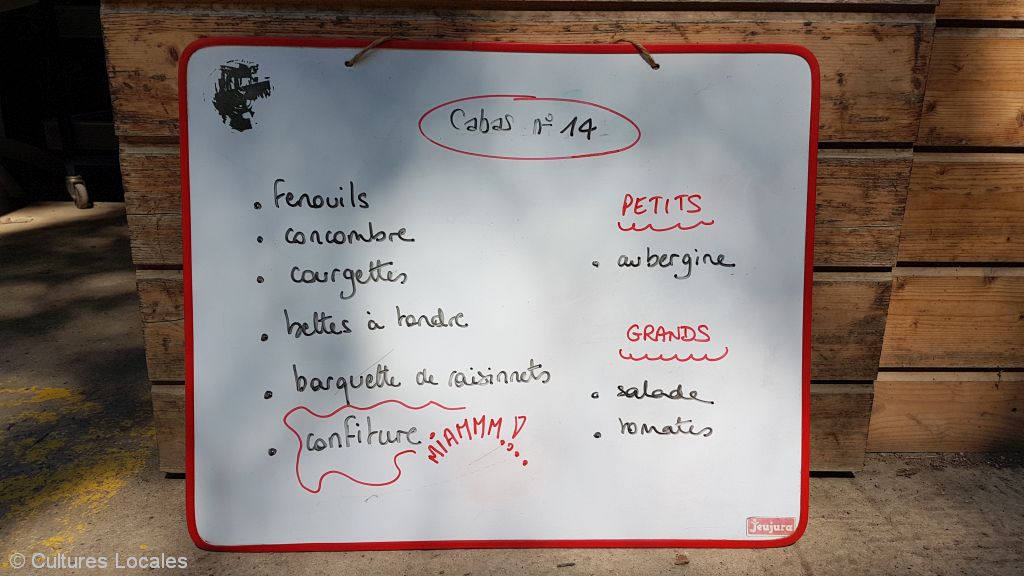 Cabas n° 14
• Fenouils
• concombre
• courgettes
• bettes à tondre
• barquette de raisinnets
• confiture MIAMMM...!
PETITS
• aubergine
GRANDS
• salade
• tomates
Jeujura
© Cultures Locales